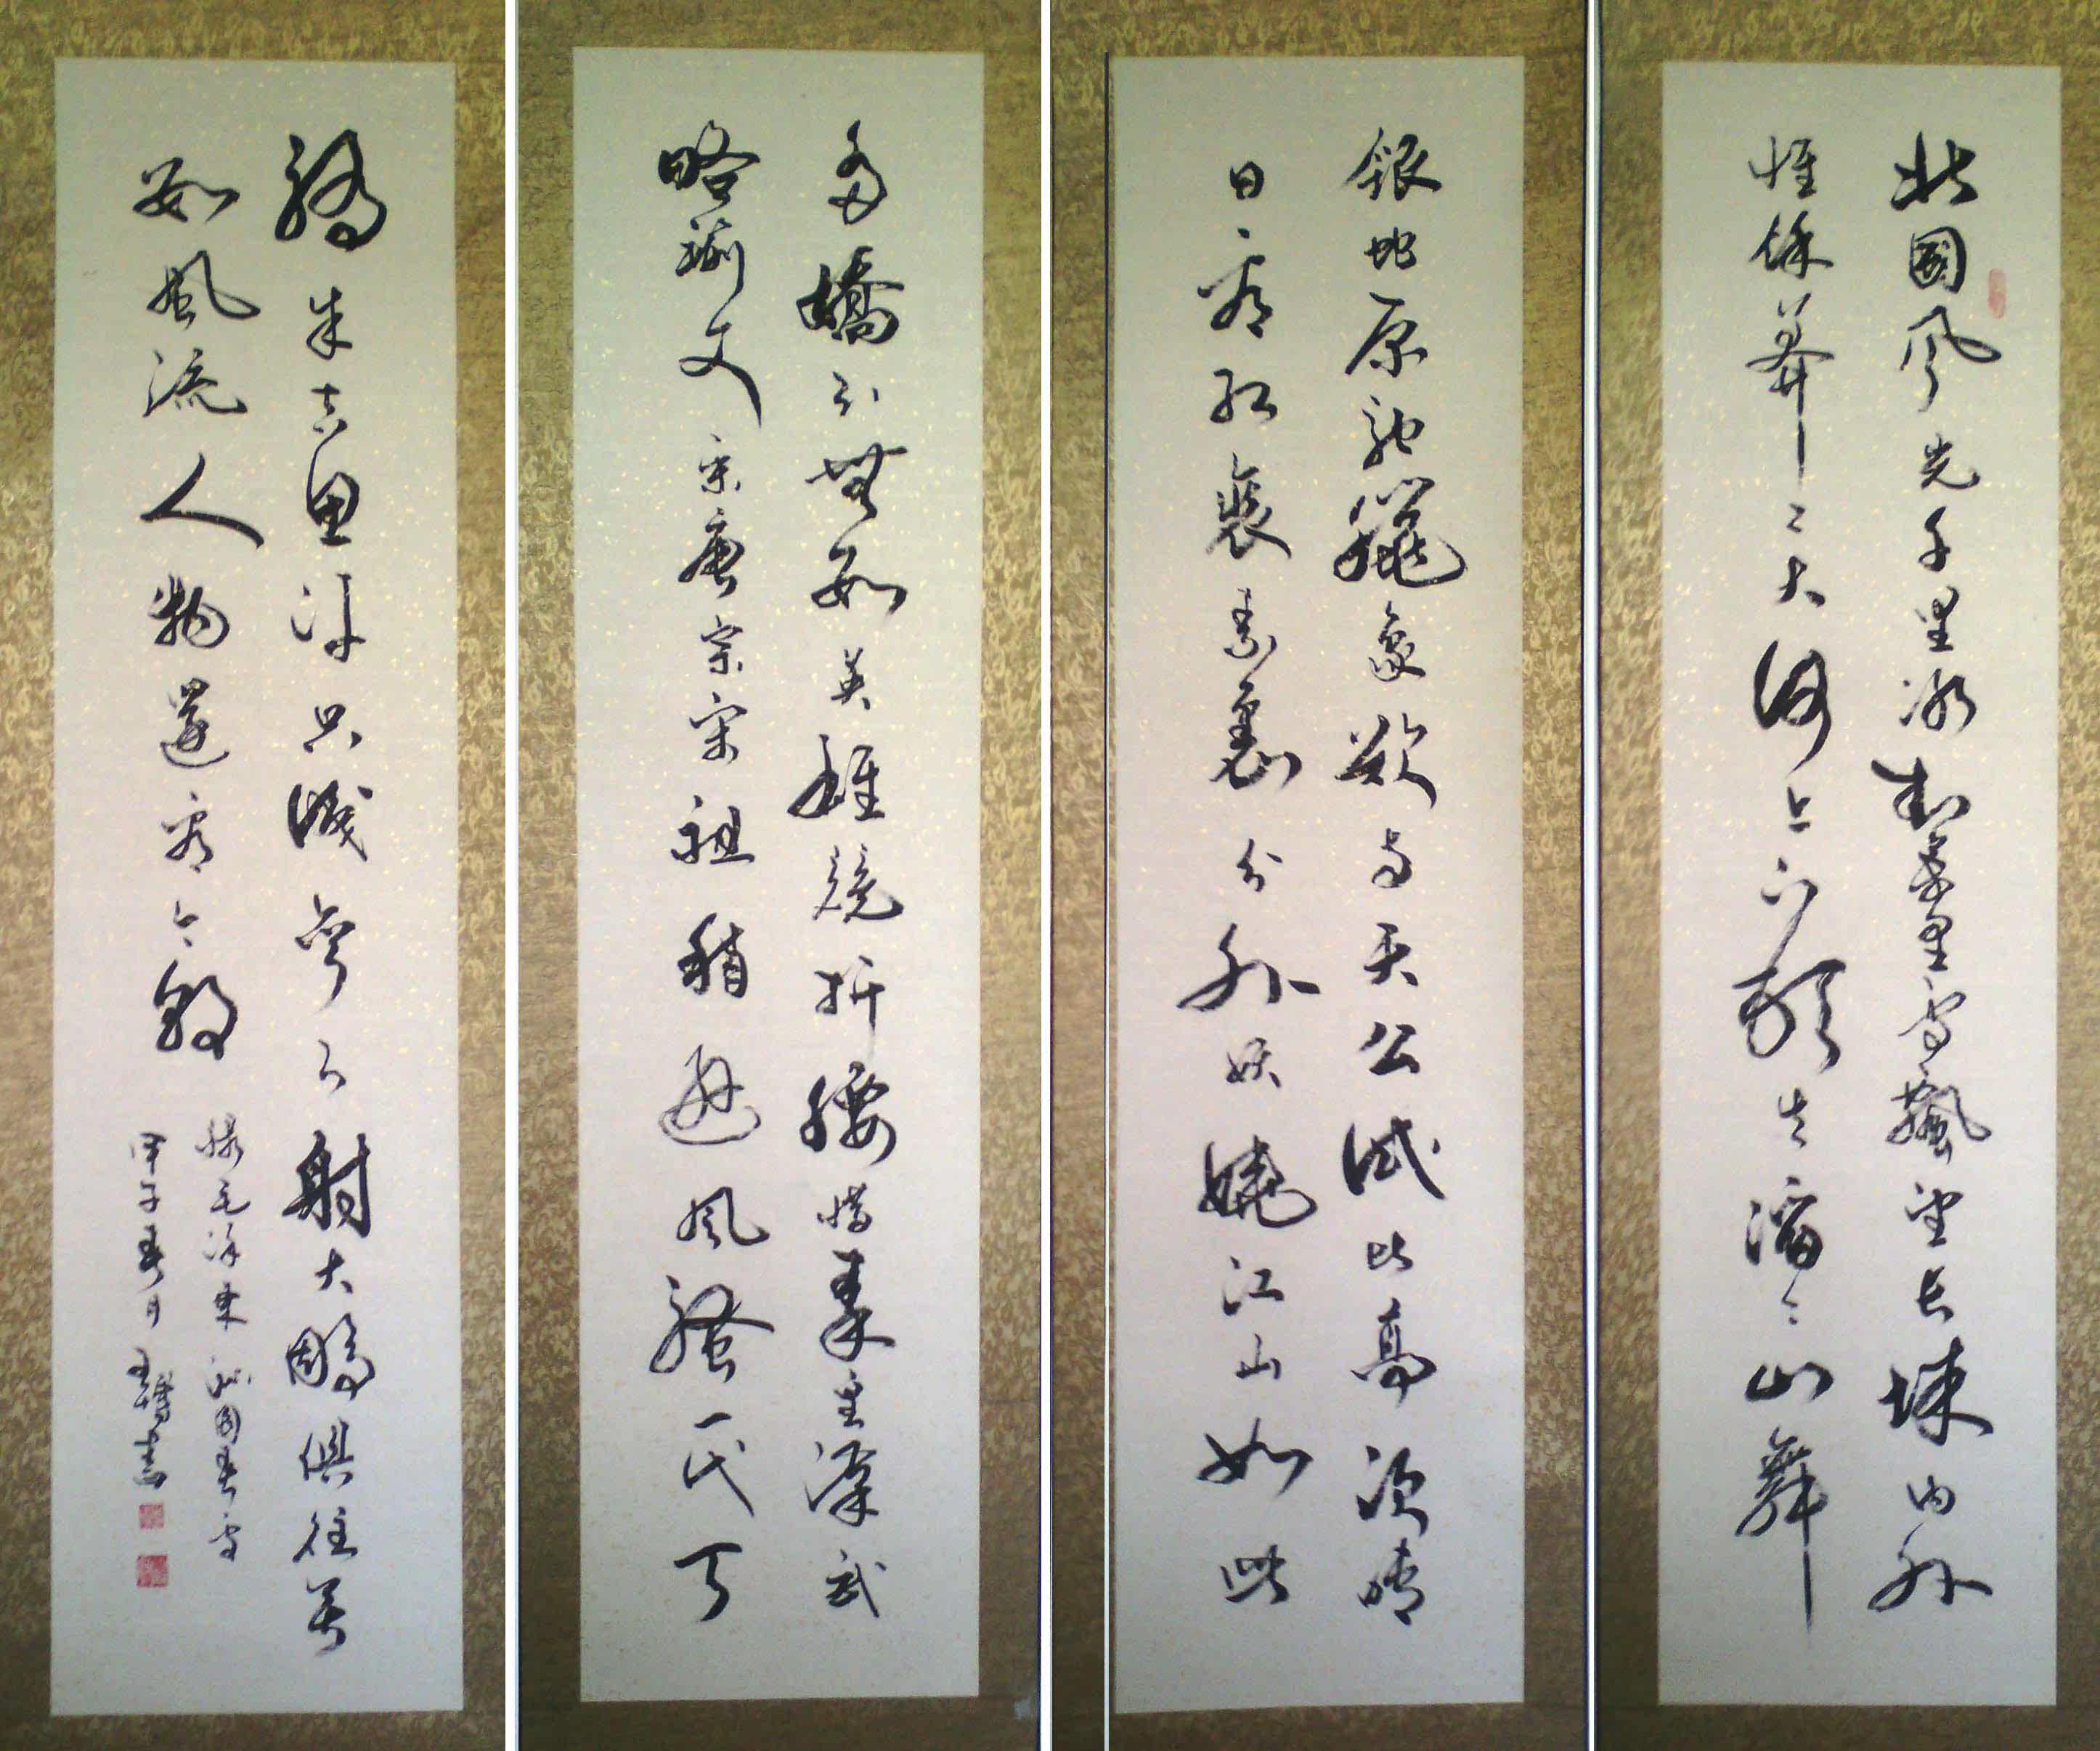 北國风光千里冰封萬里雪飄望長城内外
惟餘莽〻大河上下頓失滔〻山舞
銀蛇原馳臘象欲與天公試比高須晴
日看紅裝素裹分外妖嬈江山如此
多嬌引無數英雄競折腰惜秦皇漢武
略輸文采唐宗宋祖稍遜风騷一代天
驕成吉思汗只識彎弓射大鵰俱往矣
數風流人物還看今朝
錄毛澤東沁園春雪
甲子春月王